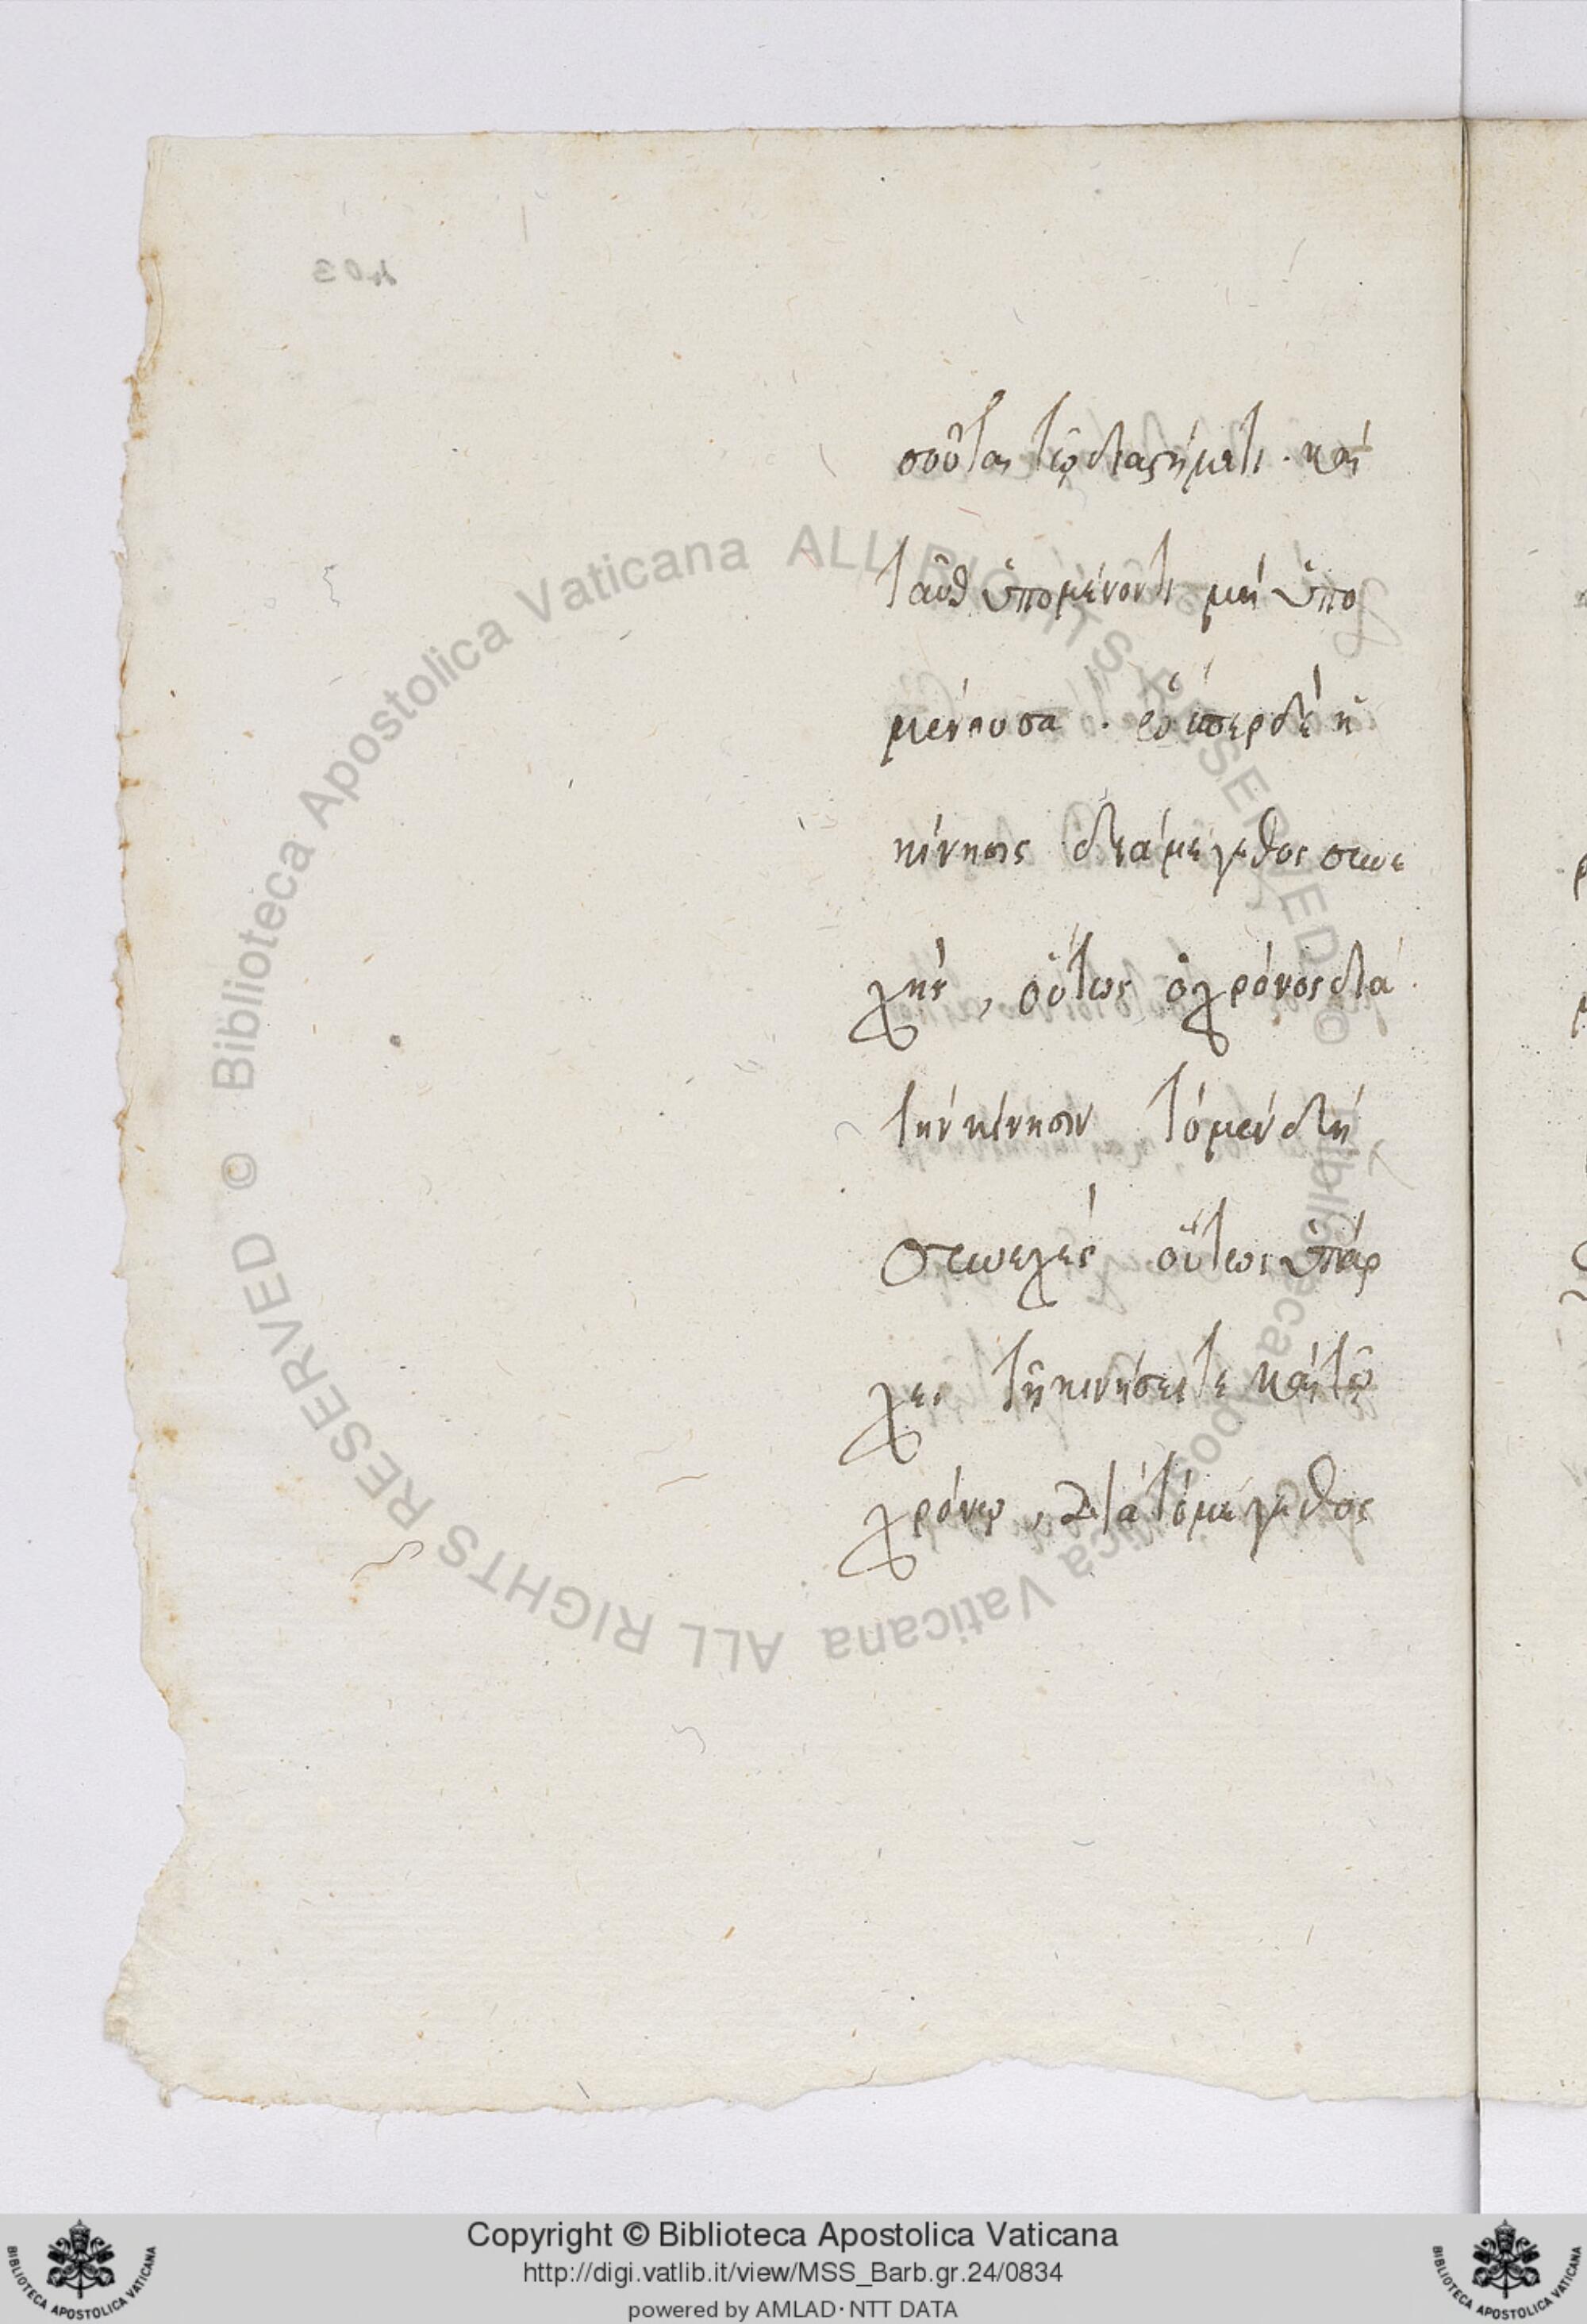 403
σοῦται τῷ διαστήματι · καὶ
ταῦθ ὑπομένοντι μὴ ὑπο
μένουσα · ὥσπερ δὲ ἡ
κίνησις διὰ μέγεθος συνε
χής , οὕτως ὁ χρόνος διὰ
τὴν κίνησιν τὸ μὲν δὴ
συνεχὲς οὕτως ὑπάρ
χει τῇ κινήσει τε καὶ τῷ
χρόνῳ , διὰ τὸ μέγεθος
© Biblioteca Apostolica Vaticana ALL RIGHTS RESERVED
© Biblioteca Apostolica Vaticana ALL RIGHTS RESERVED
Copyright © Biblioteca Apostolica Vaticana
http://digi.vatlib.it/view/MSS_Barb.gr.24/0834
powered by AMLAD · NTT DATA
BIBLIOTECA APOSTOLICA VATICANA
BIBLIOTECA APOSTOLICA VATICANA